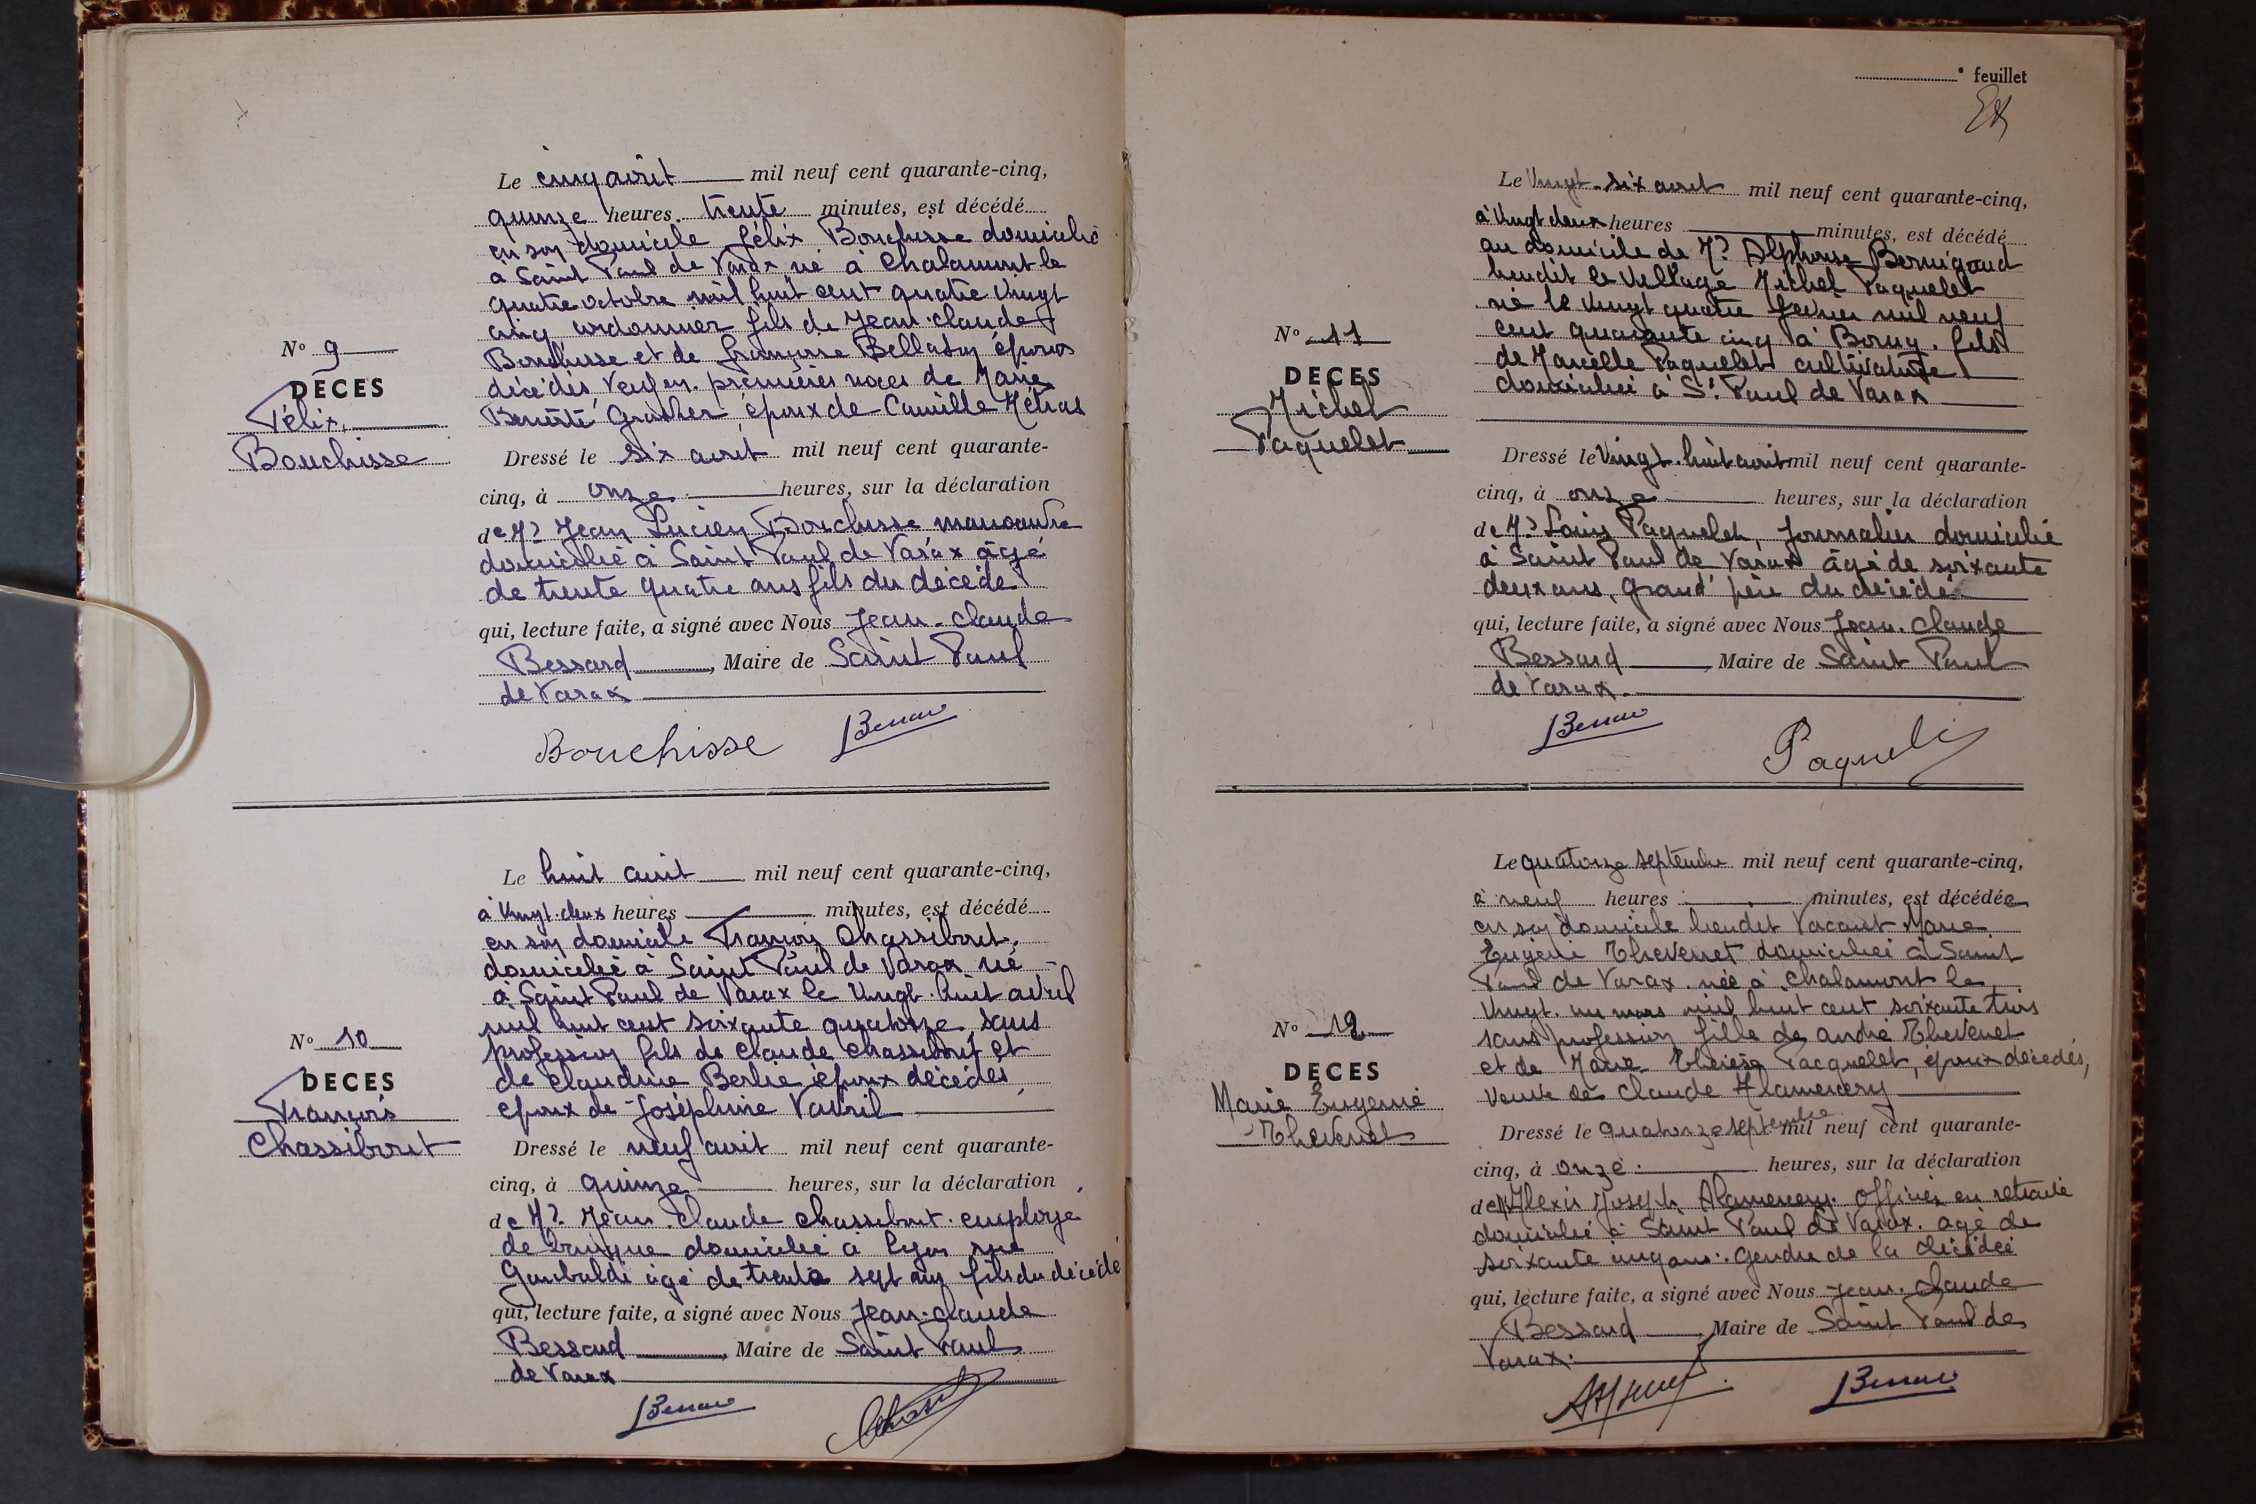 Le cinq août mil neuf cent quarante-cinq,
quinze heures trente minutes, est décédé
en son domicile Félix Bouchisse domicilié
à Saint Paul de Varax né à Chalamont le
quatre octobre mil huit cent quatre vingt
cinq cordonnier fils de Jean-Claude
Bouchisse et de Françoise époux
décédés, veuf en premières noces de Marie
époux de Camille Métras
N° 9
DECES
Félix
Bouchisse
Dressé le six août mil neuf cent quarante-
cinq, à onze heures, sur la déclaration
de Mr Jean Lucien Bouchisse manoeuvre
domicilié à Saint Paul de Varax âgé
de trente quatre ans fils du décédé
qui, lecture faite, a signé avec Nous Jean-Claude
Bessard, Maire de Saint Paul
de Varax
Bouchisse
Le huit août mil neuf cent quarante-cinq,
à vingt-deux heures minutes, est décédé
en son domicile François Chassibout,
domicilié à Saint Paul de Varax né
à Saint Paul de Varax le vingt-huit avril
mil huit cent soixante quatorze, sans
profession fils de Claude Chassibout et
de Claudine Berlie époux décédés,
époux de Joséphine Vavril
N° 10
DECES
François
Chassibout
Dressé le neuf août mil neuf cent quarante-
cinq, à quinze heures, sur la déclaration
de Mr Jean-Claude Chassibout employé
de banque domicilié à Lyon rue
Garibaldi âgé de trente sept ans fils du décédé
qui, lecture faite, a signé avec Nous Jean-Claude
Bessard, Maire de Saint Paul
de Varax
° feuillet
Le vingt-six août mil neuf cent quarante-cinq,
à vingt deux heures minutes, est décédé
au domicile de Mr Alphonse Bernigaud
lieudit le Village Michel Paquelet
né le vingt quatre février mil neuf
cent quarante cinq à Bourg. fils
de Marcelle Paquelet cultivatrice
domiciliée à St Paul de Varax
N° 11
DECES
Michel
Paquelet
Dressé le vingt-huit août mil neuf cent quarante-
cinq, à onze heures, sur la déclaration
de Mr Louis Paquelet, journalier domicilié
à Saint Paul de Varax âgé de soixante
deux ans, grand père du décédé
qui, lecture faite, a signé avec Nous Jean-Claude
Bessard, Maire de Saint Paul
de Varax.
Le quatorze septembre mil neuf cent quarante-cinq,
à neuf heures minutes, est décédée
en son domicile lieudit Vacant Marie
Eugénie Thevenet domiciliée à Saint
Paul de Varax. née à Chalamont le
vingt un mars mil huit cent soixante trois
sans profession fille de André Thevenet
et de Marie Thérèse Pacquelet, époux décédés,
veuve de Claude Alamercery
N° 12
DECES
Marie Eugénie
Thevenet
Dressé le quatorze septembre mil neuf cent quarante-
cinq, à onze heures, sur la déclaration
de Alexis Joseph Alamercery officier en retraite
domicilié à Saint Paul de Varax. âgé de
soixante cinq ans. Gendre de la décédée
qui, lecture faite, a signé avec Nous Jean-Claude
Bessard, Maire de Saint Paul de
Varax.